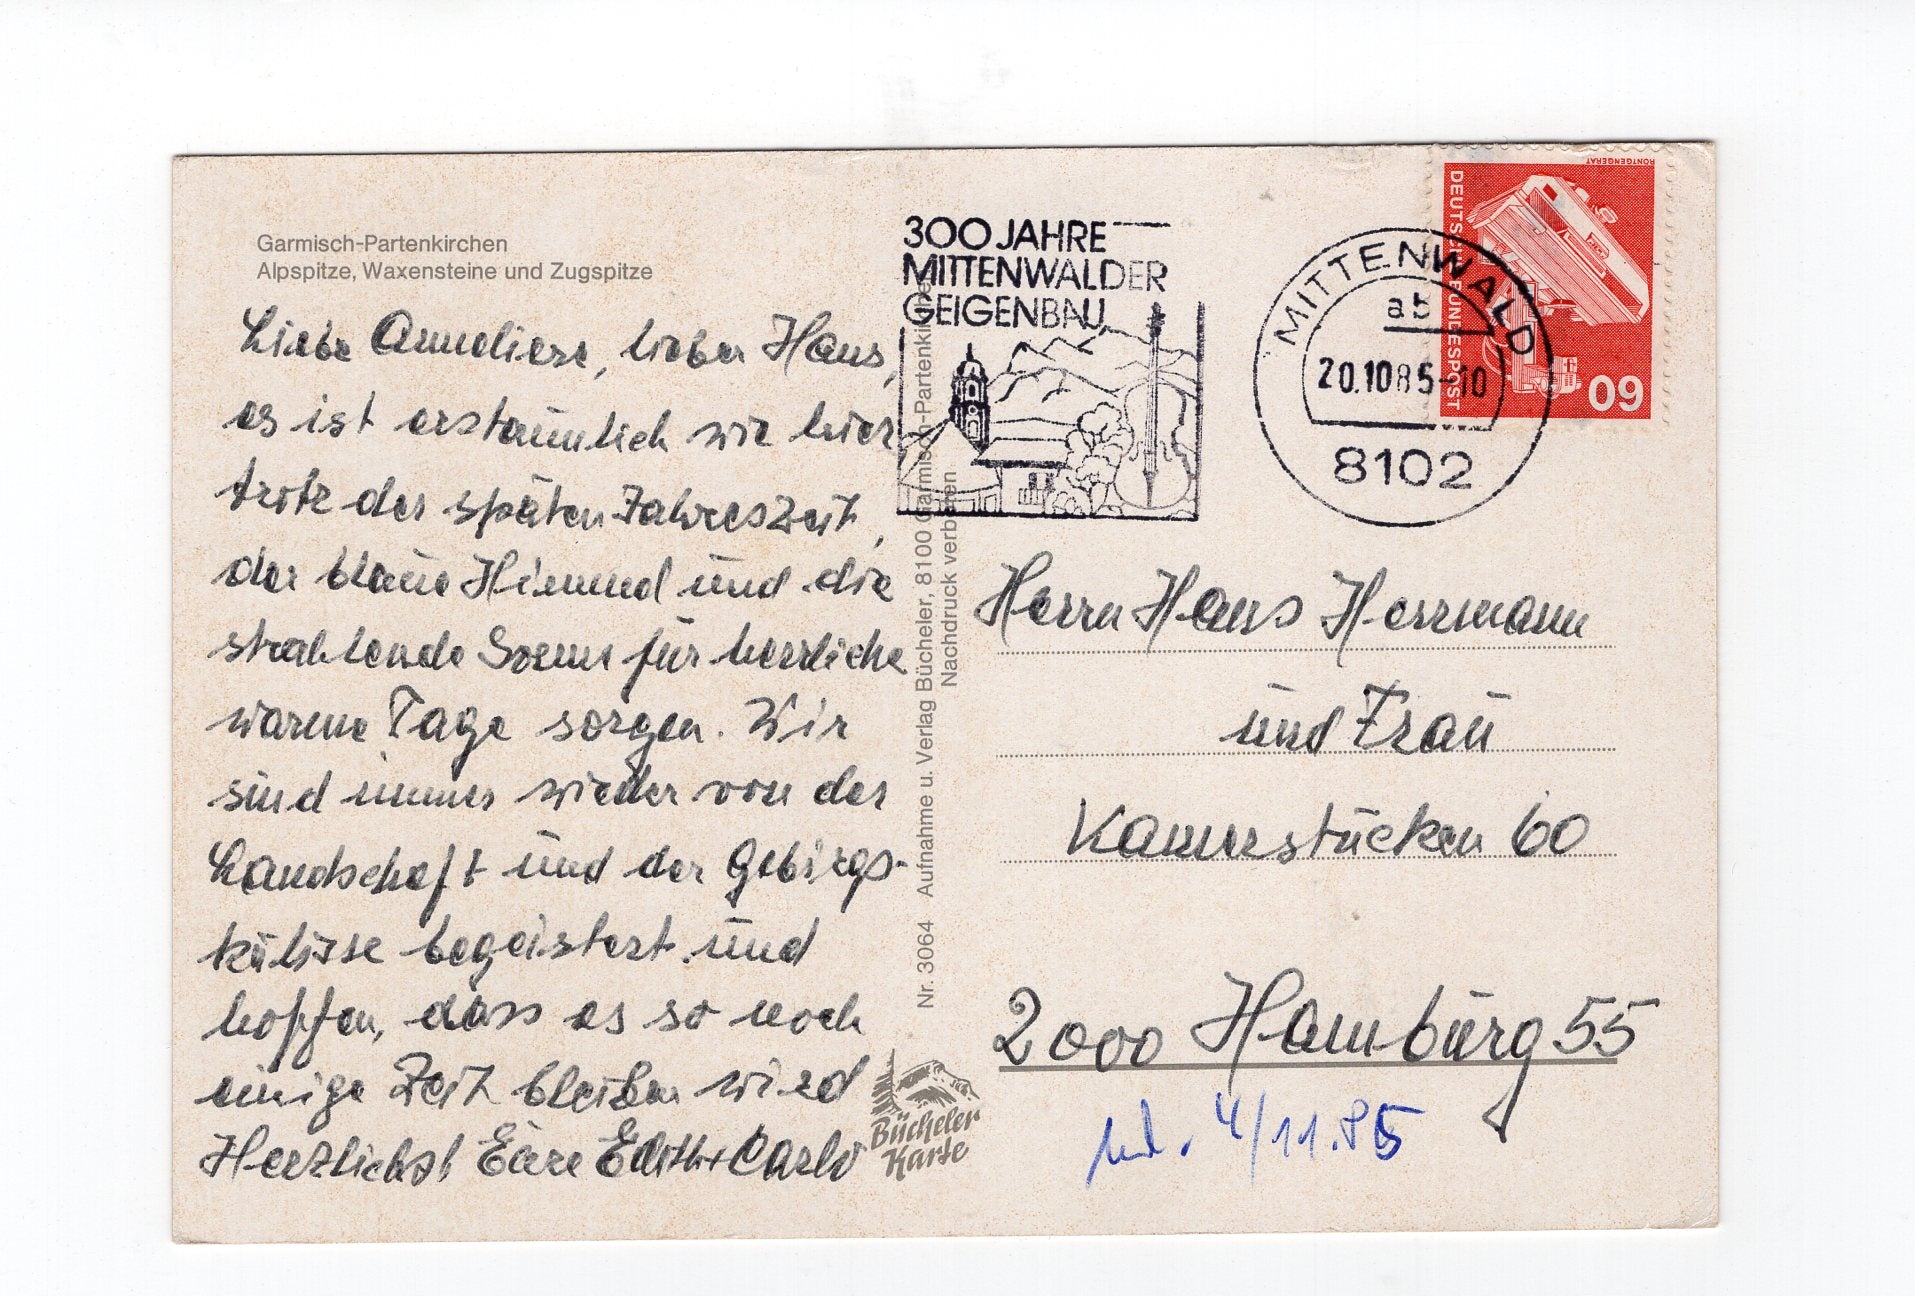 Garmisch-Partenkirchen
Alpspitze, Waxensteine und Zugspitze
Liebe Anneliese, lieber Hans,
es ist erstaunlich wie hier,
trotz der späten Jahreszeit,
der blaue Himmel und die
strahlende Sonne für herrliche
warme Tage sorgen. Wir
sind immer wieder von der
Landschaft und der Gebirgs-
kulisse begeistert und
hoffen, dass es so noch
einige Zeit bleiben wird
Herzlichst Eure Edith + Carlo
Nr. 3064 Aufnahme u. Verlag Bücheler, 8100 Garmisch-Partenkirchen
Nachdruck verboten
Bücheler
Karte
300 JAHRE
MITTENWALDER
GEIGENBAU
MITTENWALD
ab
20.10.85-10
8102
RÖNTGENGERÄT
DEUTSCHE BUNDESPOST
60
Herrn Hans Herrmann
und Frau
Kamerstücken 60
2000 Hamburg 55
4/11.85